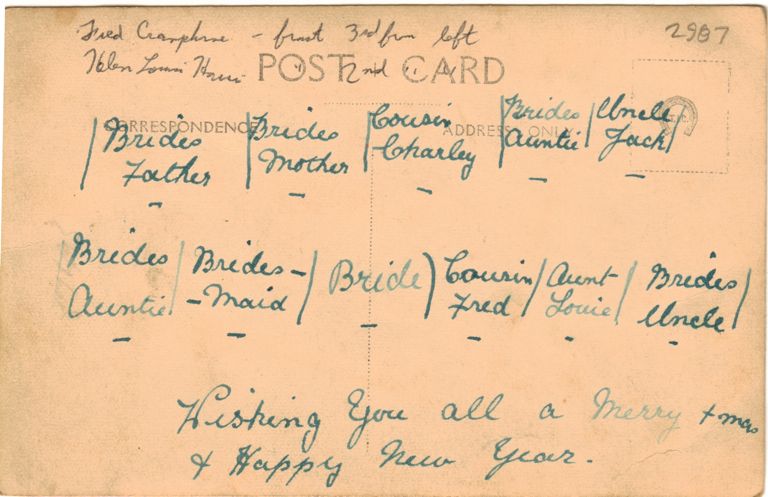 Fred Cramphrne - front 3rd from left 2987
Helen Louisi " 2nd " "
POST CARD
CORRESPONDENCE ADDRESS ONLY
/ Brides / Brides / Cousin / Brides / Uncle
Father / Mother / Charley / Auntie / Jack /
/ Brides / Brides - / Bride ) Cousin / Aunt / Brides
Auntie / - Maid / Fred / Louie / Uncle /
Wishing You all a Merry Xmas
& Happy New Year.